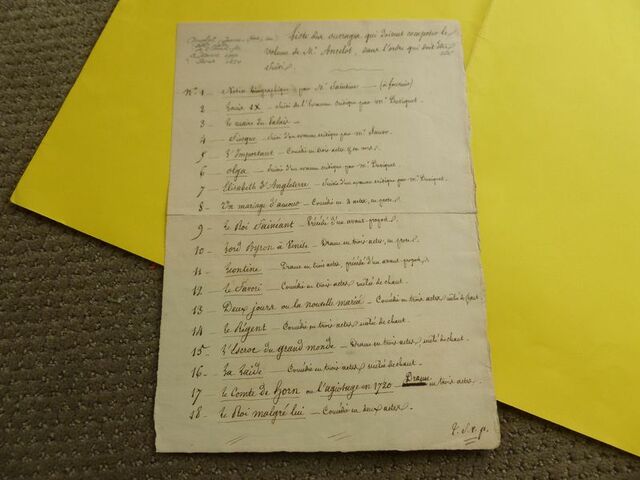 Liste des ouvrages qui doivent composer le
volume de Mr Ancelot, dans l'ordre qui doit être
suivi
N° 1 — Notice biographique par Mr Saintine — (à fournir)
2 Louis IX — suivi de l'examen critique par Mr
3 — Le maire du Palais —
4 — Fiesque — suivi d'un examen critique par Mr
5 — L'Important — Comédie en trois actes & en vers.
6 — Olga — suivie d'un examen critique par Mr
7 — Elisabeth d'Angleterre — suivie d'un examen critique par Mr
8 — Un mariage d'amour — Comédie en 3 actes, en prose.
9 — Le Roi fainéant — Précédé d'un avant-propos.
10 — Lord Byron à Venise — Drame en trois actes, en prose.
11 — Léontine — Drame en trois actes, précédé d'un avant-propos.
12 — Le Favori — Comédie en trois actes mêlée de chant.
13 — Deux jours ou la nouvelle mariée — Comédie en trois actes mêlée de chant.
14 — Le Régent — Comédie en trois actes mêlée de chant.
15 — L'Escroc du grand monde — Drame en trois actes, mêlé de chant.
16 — La Laide — Comédie en trois actes mêlée de chant.
17 Le Comte de Horn ou l'agiotage en 1720 — Drame en trois actes.
18 — Le Roi malgré lui — Comédie en deux actes.
T. S. V. P.